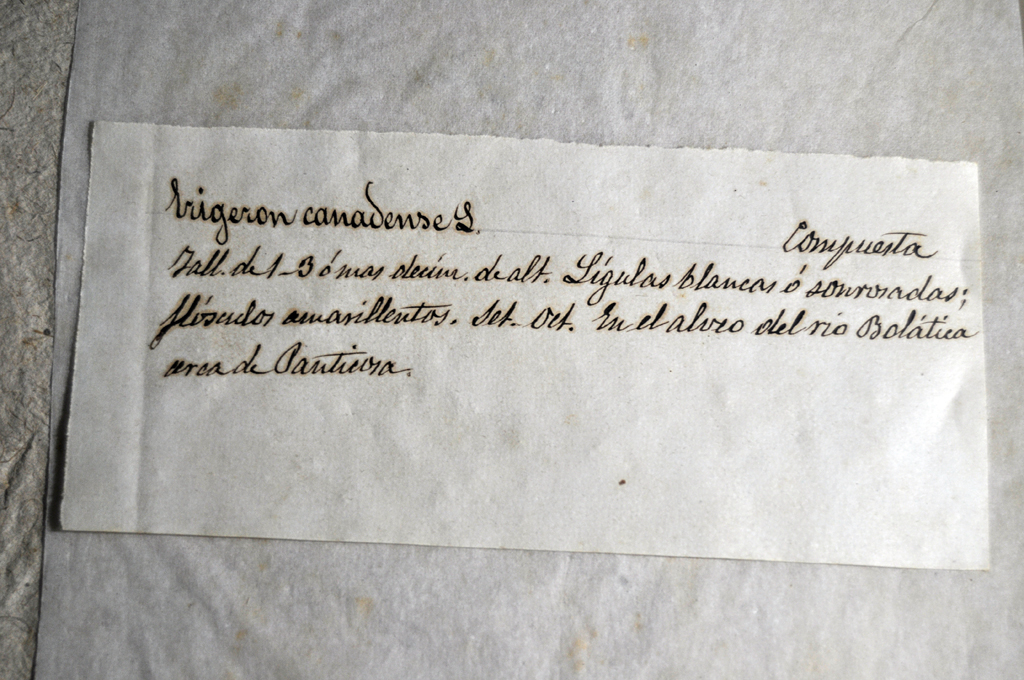 Erigeron canadense L.
Compuesta
Tall. de 1-3 ó mas decím. de alt. Lígulas blancas ó sonrosadas;
flósculos amarillentos. Set. Oct. En el alveo del rio Bolática
cerca de Panticosa.